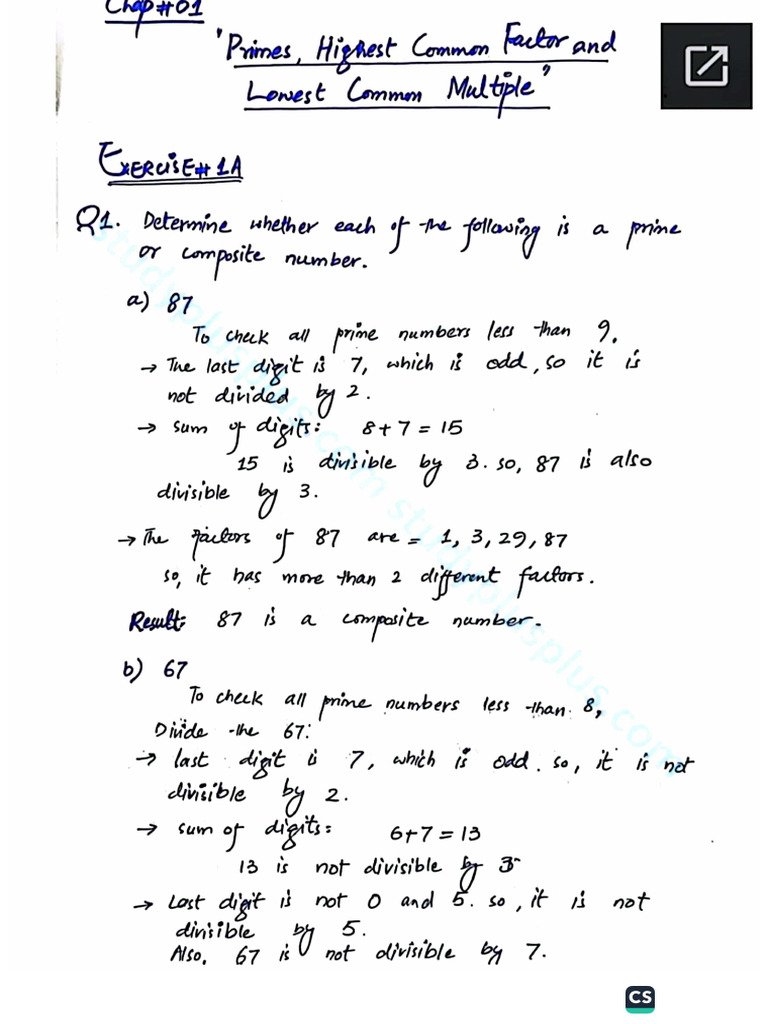 Chap#01
"Primes, Highest Common Factor and
Lowest Common Multiple"
EXERCISE# 1A
Q1. Determine whether each of the following is a prime
or composite number.
a) 87
To check all prime numbers less than 9.
→ The last digit is 7, which is odd, so it is
not divided by 2.
→ sum of digits: 8+7=15
15 is divisible by 3. so, 87 is also
divisible by 3.
→ The factors of 87 are = 1, 3, 29, 87
so, it has more than 2 different factors.
Result: 87 is a composite number.
b) 67
To check all prime numbers less than 8,
Divide the 67:
→ last digit is 7, which is odd. so, it is not
divisible by 2.
→ sum of digits: 6+7=13
13 is not divisible by 3
→ Last digit is not 0 and 5. so, it is not
divisible by 5.
Also, 67 is not divisible by 7.
studyplusplus.com studyplusplus.com
CS